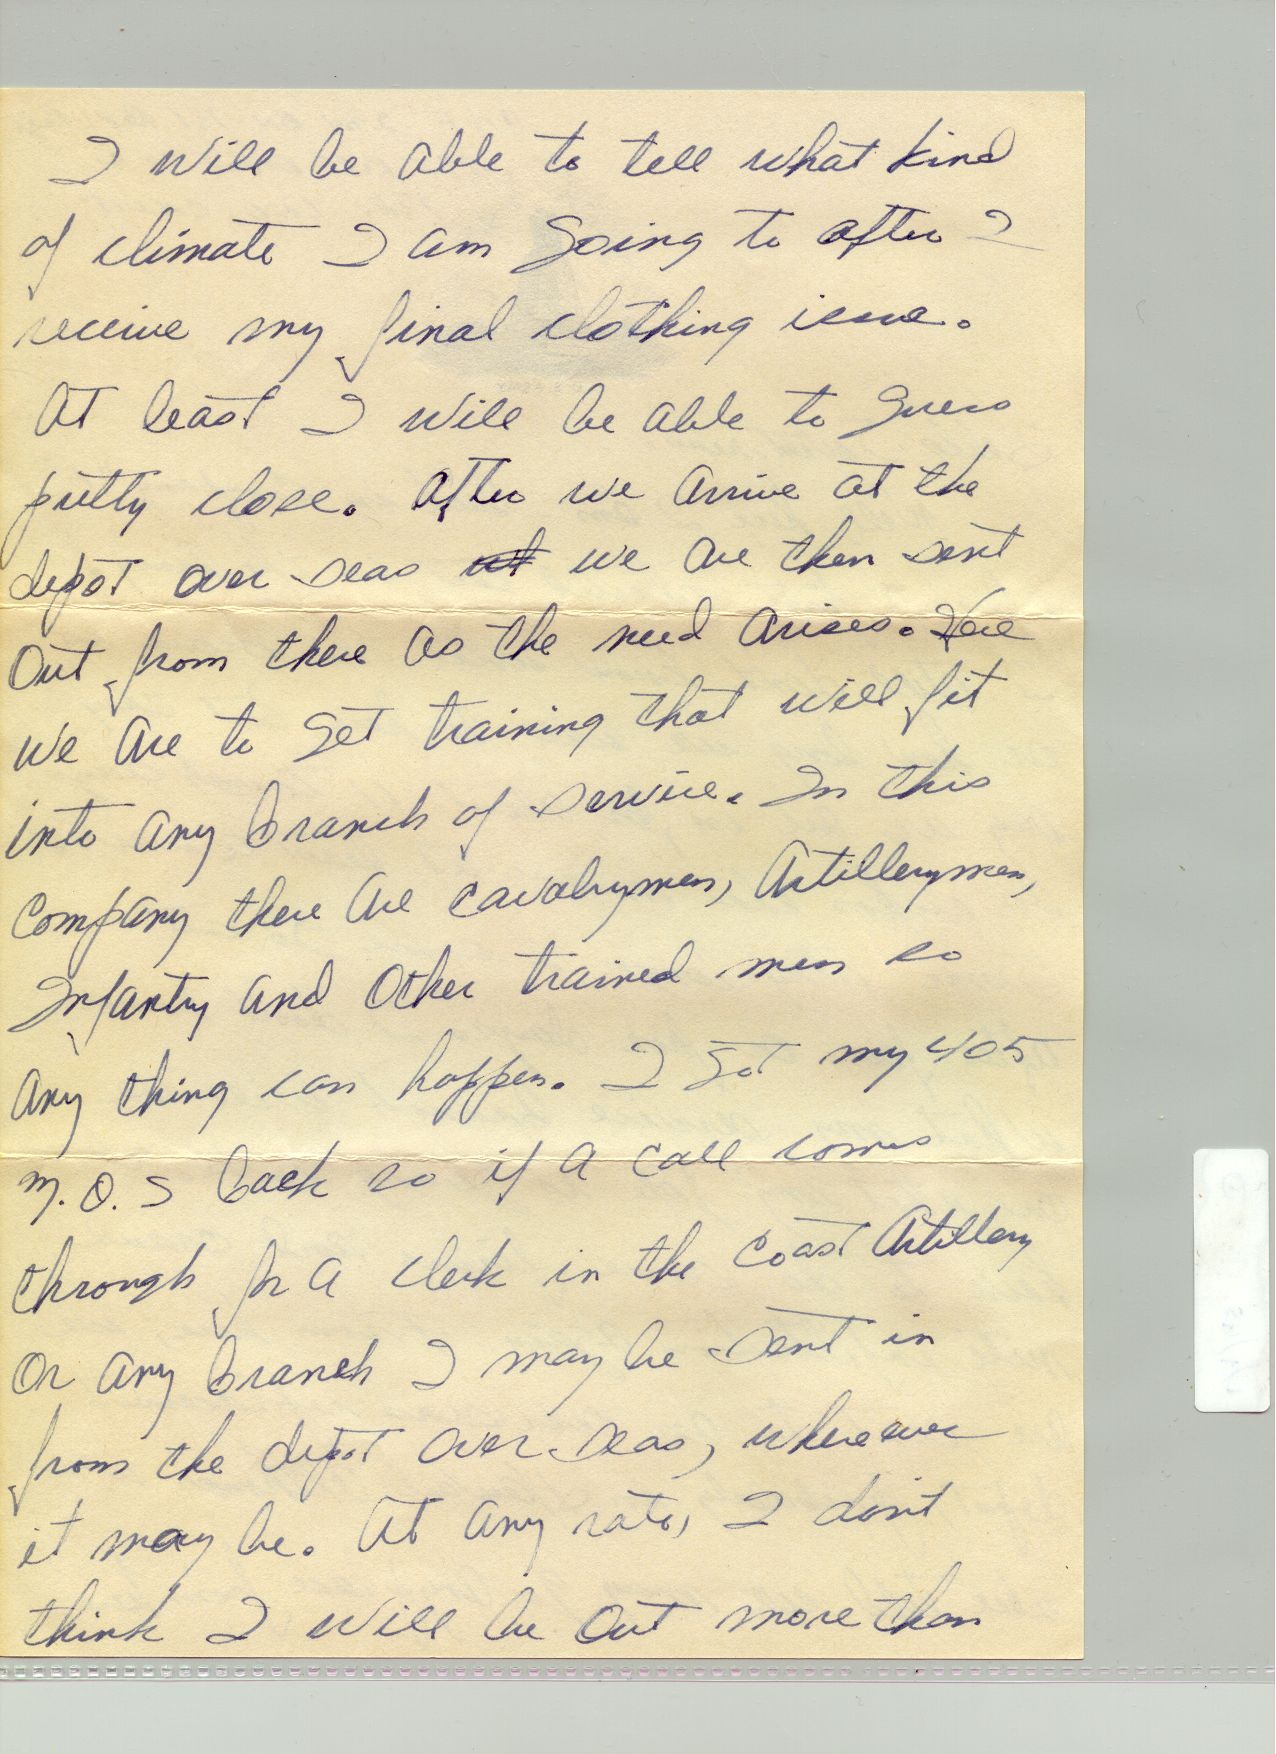 I will be able to tell what kind
of climate I am going to after I
receive my final clothing issue.
At least I will be able to guess
pretty close. After we arrive at the
depot over seas we are then sent
out from there as the need arises. Here
we are to get training that will fit
into any branch of service. In this
company there are cavalrymen, Artillerymen,
Infantry and other trained men so
any thing can happen. I got my 405
M.O.S back so if a call comes
through for a clerk in the Coast Artillery
or any branch I may be sent in
from the depot over seas, where ever
it may be. At any rate, I don't
think I will be out more than